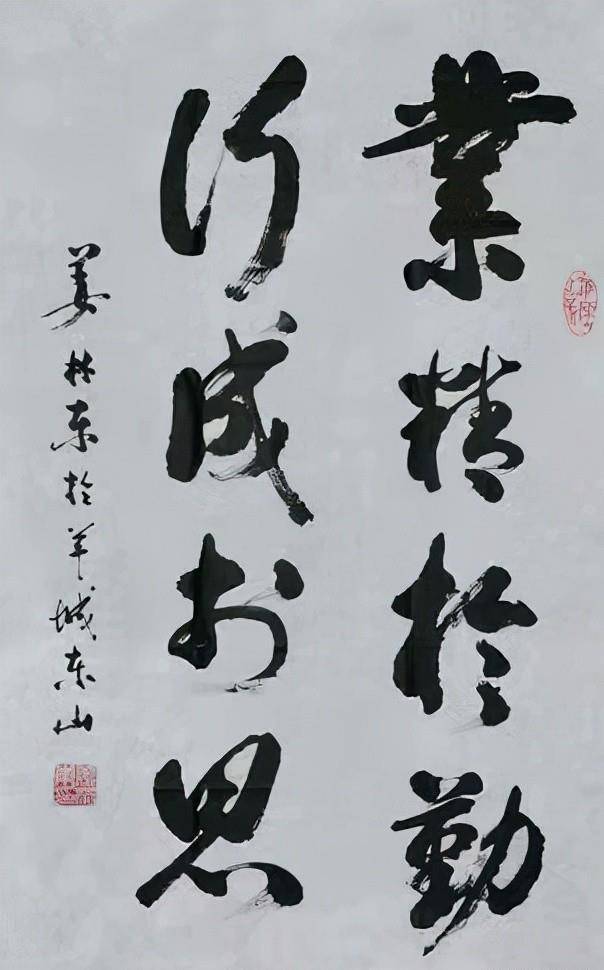 業精於勤
行成於思
姜林东於羊城东山